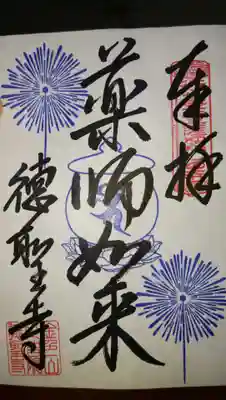 奉拝
薬師如来
徳聖寺